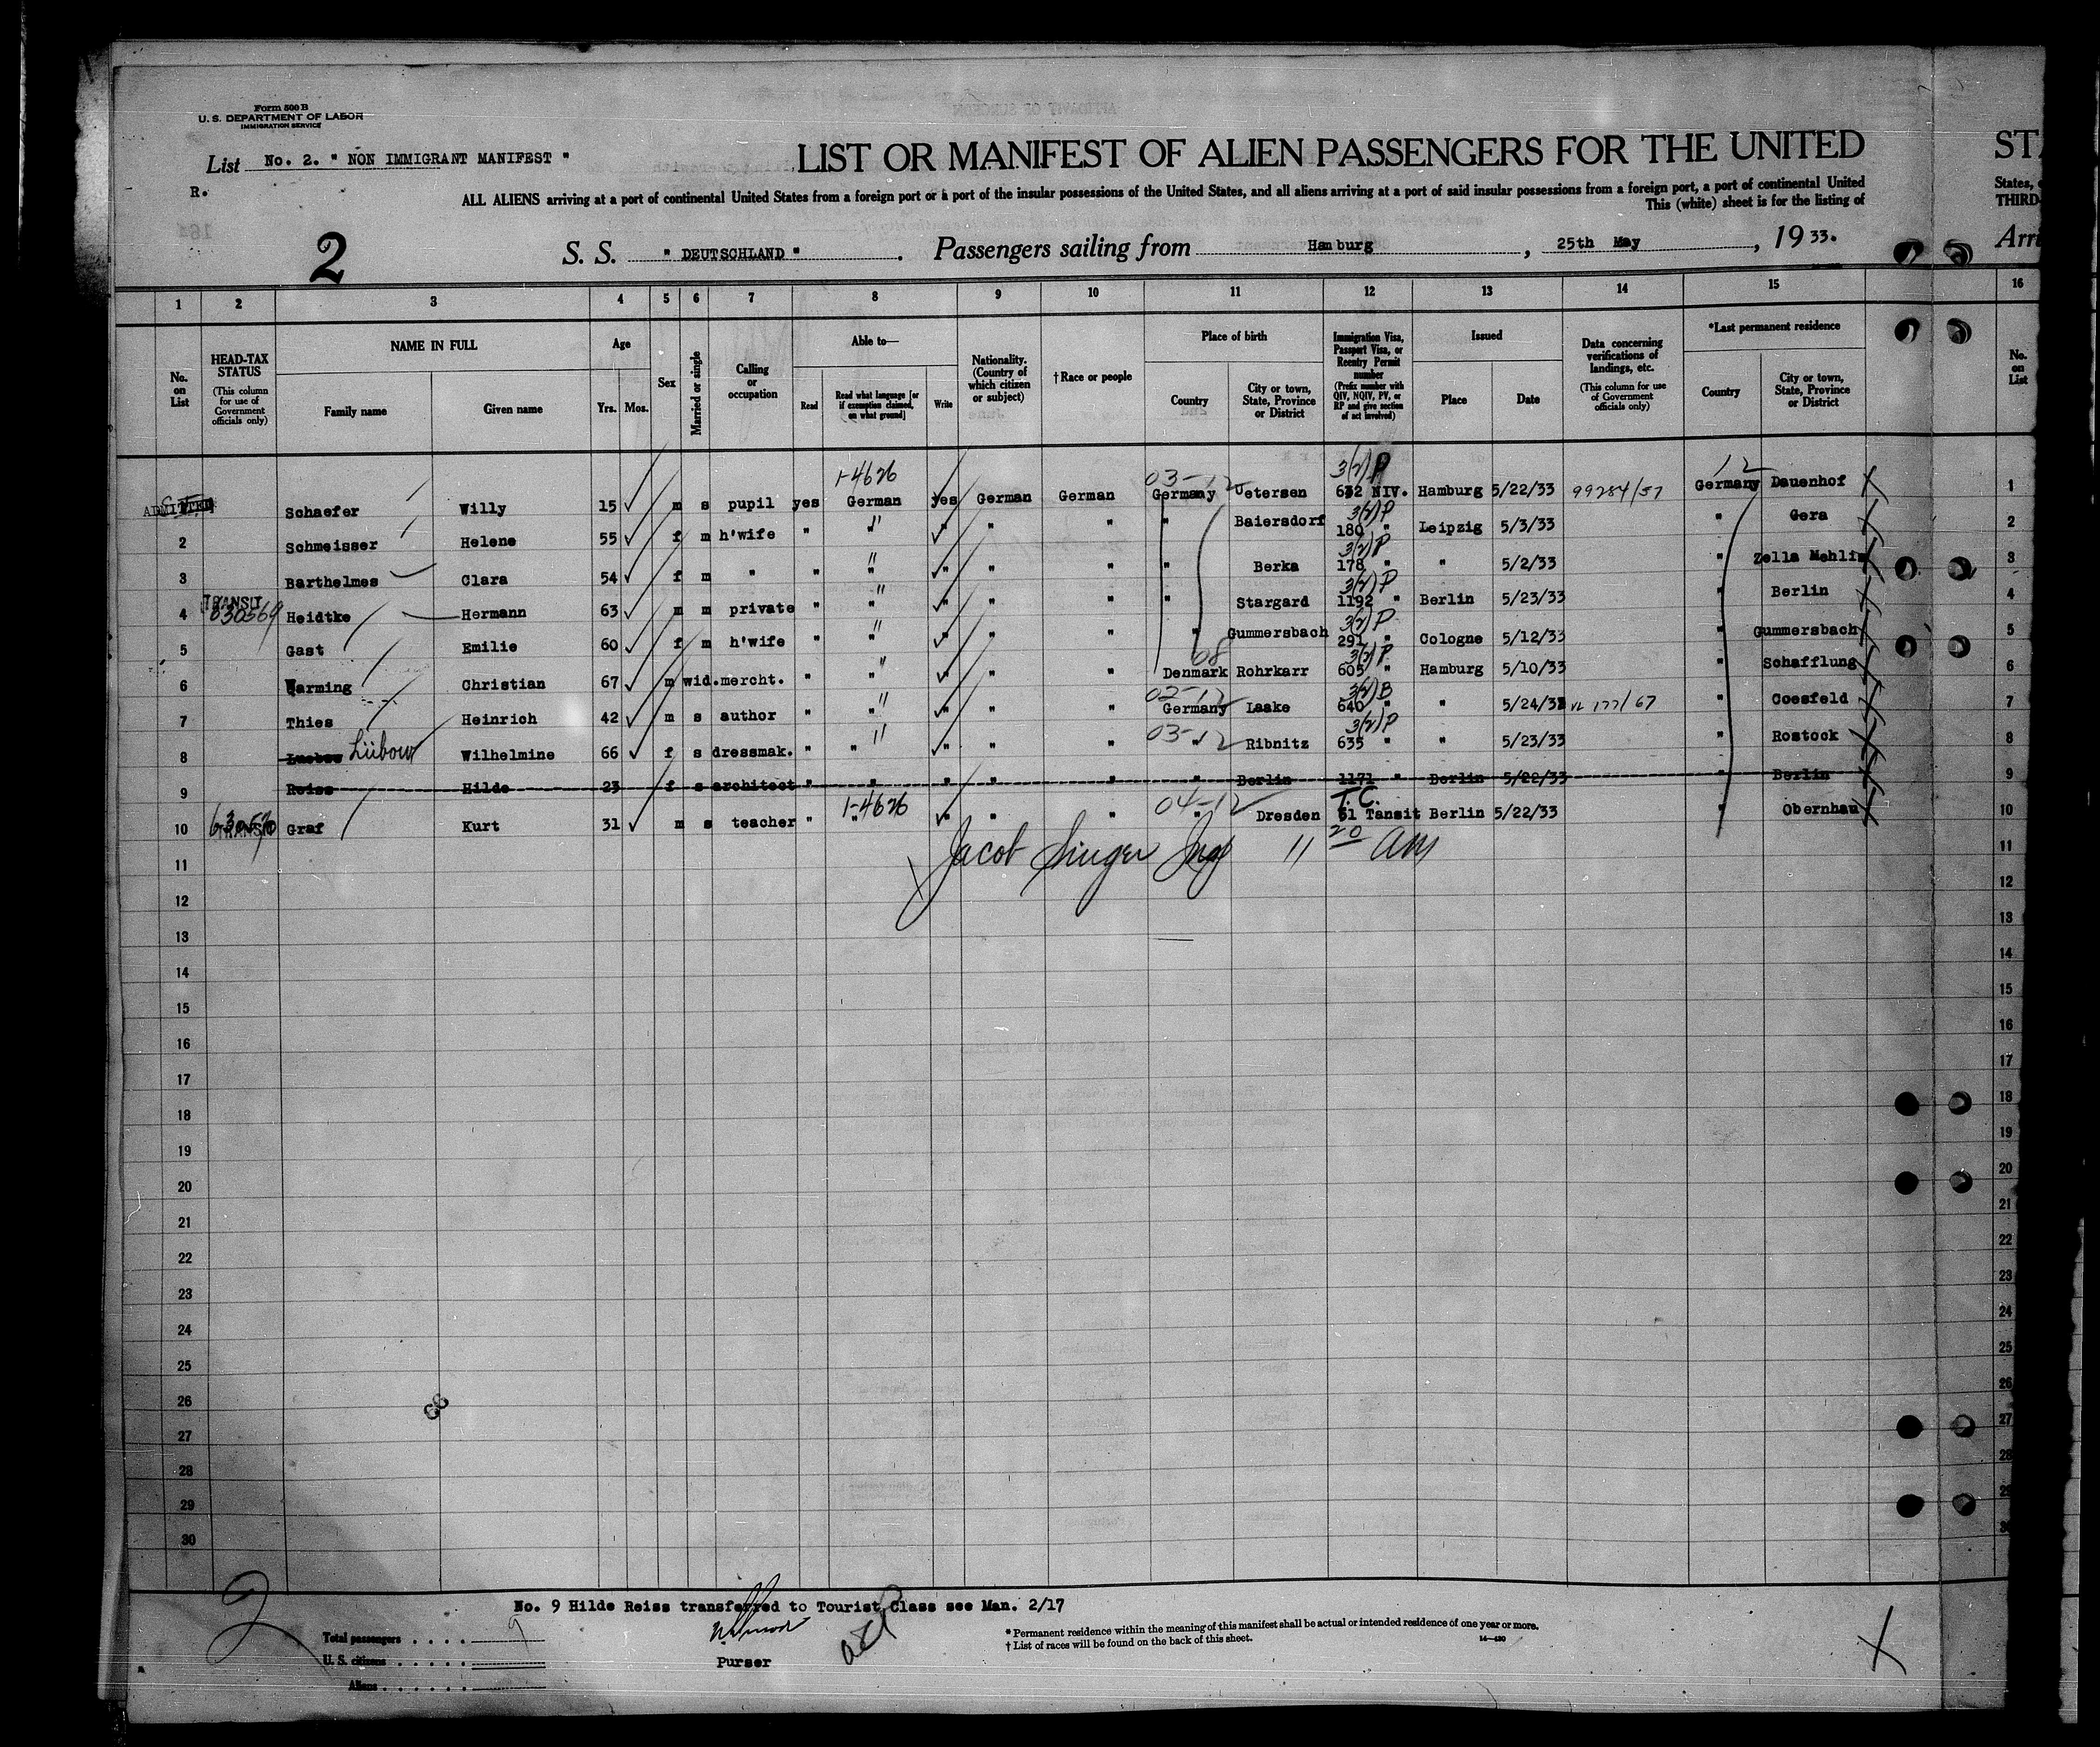 Form 500 B
U. S. DEPARTMENT OF LABOR
IMMIGRATION SERVICE
List No. 2. " NON IMMIGRANT MANIFEST "
R.
LIST OR MANIFEST OF ALIEN PASSENGERS FOR THE UNITED
ST
ALL ALIENS arriving at a port of continental United States from a foreign port or a port of the insular possessions of the United States, and all aliens arriving at a port of said insular possessions from a foreign port, a port of continental United
States,
This (white) sheet is for the listing of
THIRD-
2
S. S. " DEUTSCHLAND ". Passengers sailing from Hamburg, 25th May, 1933.
Arri
1 2 3 4 5 6 7 8 9 10 11 12 13 14 15 16
No. on List
HEAD-TAX STATUS (This column for use of Government officials only)
NAME IN FULL
Family name Given name
Age
Yrs. Mos.
Sex
Married or single
Calling or occupation
Able to—
Read Read what language [or if exemption claimed, on what ground] Write
Nationality. (Country of which citizen or subject)
†Race or people
Place of birth
Country City or town, State, Province or District
Immigration Visa, Passport Visa, or Reentry Permit number (Prefix number with QIV, NQIV, PV, or RP and give section of act involved)
Issued
Place Date
Data concerning verifications of landings, etc. (This column for use of Government officials only)
*Last permanent residence
Country City or town, State, Province or District
No. on List
1-4626 03-12 3(2)P 12
ADMITTED Schaefer Willy 15 m s pupil yes German yes German German Germany Uetersen 632 NIV. Hamburg 5/22/33 99284/57 Germany Dauenhof 1
3(2)P
2 Schmeisser Helene 55 f m h'wife " " " " " " Baiersdorf 180 " Leipzig 5/3/33 " Gera 2
3(2)P
3 Barthelmes Clara 54 f m " " " " " " " Berka 178 " " 5/2/33 " Zella Mehlis 3
TRANSIT 3(2)P
4 630569 Heidtke Hermann 63 m m private " " " " " " Stargard 1192 " Berlin 5/23/33 " Berlin 4
3(2)P
5 Gast Emilie 60 f m h'wife " " " " " " Gummersbach 291 " Cologne 5/12/33 " Gummersbach 5
08 3(2)P
6 Warming Christian 67 m wid. mercht. " " " " " Denmark Rohrkarr 605 " Hamburg 5/10/33 " Schafflung 6
02-12 3(2)B
7 Thies Heinrich 42 m s author " " " " " Germany Laake 640 " " 5/24/33 VL 177/67 " Coesfeld 7
03-12 3(2)P
8 Luebow Lübow Wilhelmine 66 f s dressmak. " " " " " " Ribnitz 635 " " 5/23/33 " Rostock 8
9 Reiss Hilde 23 f s architect " " " " " " Berlin 1171 " Berlin 5/22/33 " Berlin 9
1-4626 04-12 T.C.
10 630570 TRANSIT Graf Kurt 31 m s teacher " " " " " " Dresden 51 Transit Berlin 5/22/33 " Obernhau 10
Jacob Singer Insp 11 20 am
11 11
12 12
13 13
14 14
15 15
16 16
17 17
18 18
19 19
20 20
21 21
22 22
23 23
24 24
25 25
26 26
27 27
28 28
29 29
30 30
2
No. 9 Hilde Reiss transferred to Tourist Class see Man. 2/17
Total passengers . . . . 9
U. S. citizens . . . . .
Aliens . . . . . .
Purser
* Permanent residence within the meaning of this manifest shall be actual or intended residence of one year or more.
† List of races will be found on the back of this sheet.
14—430